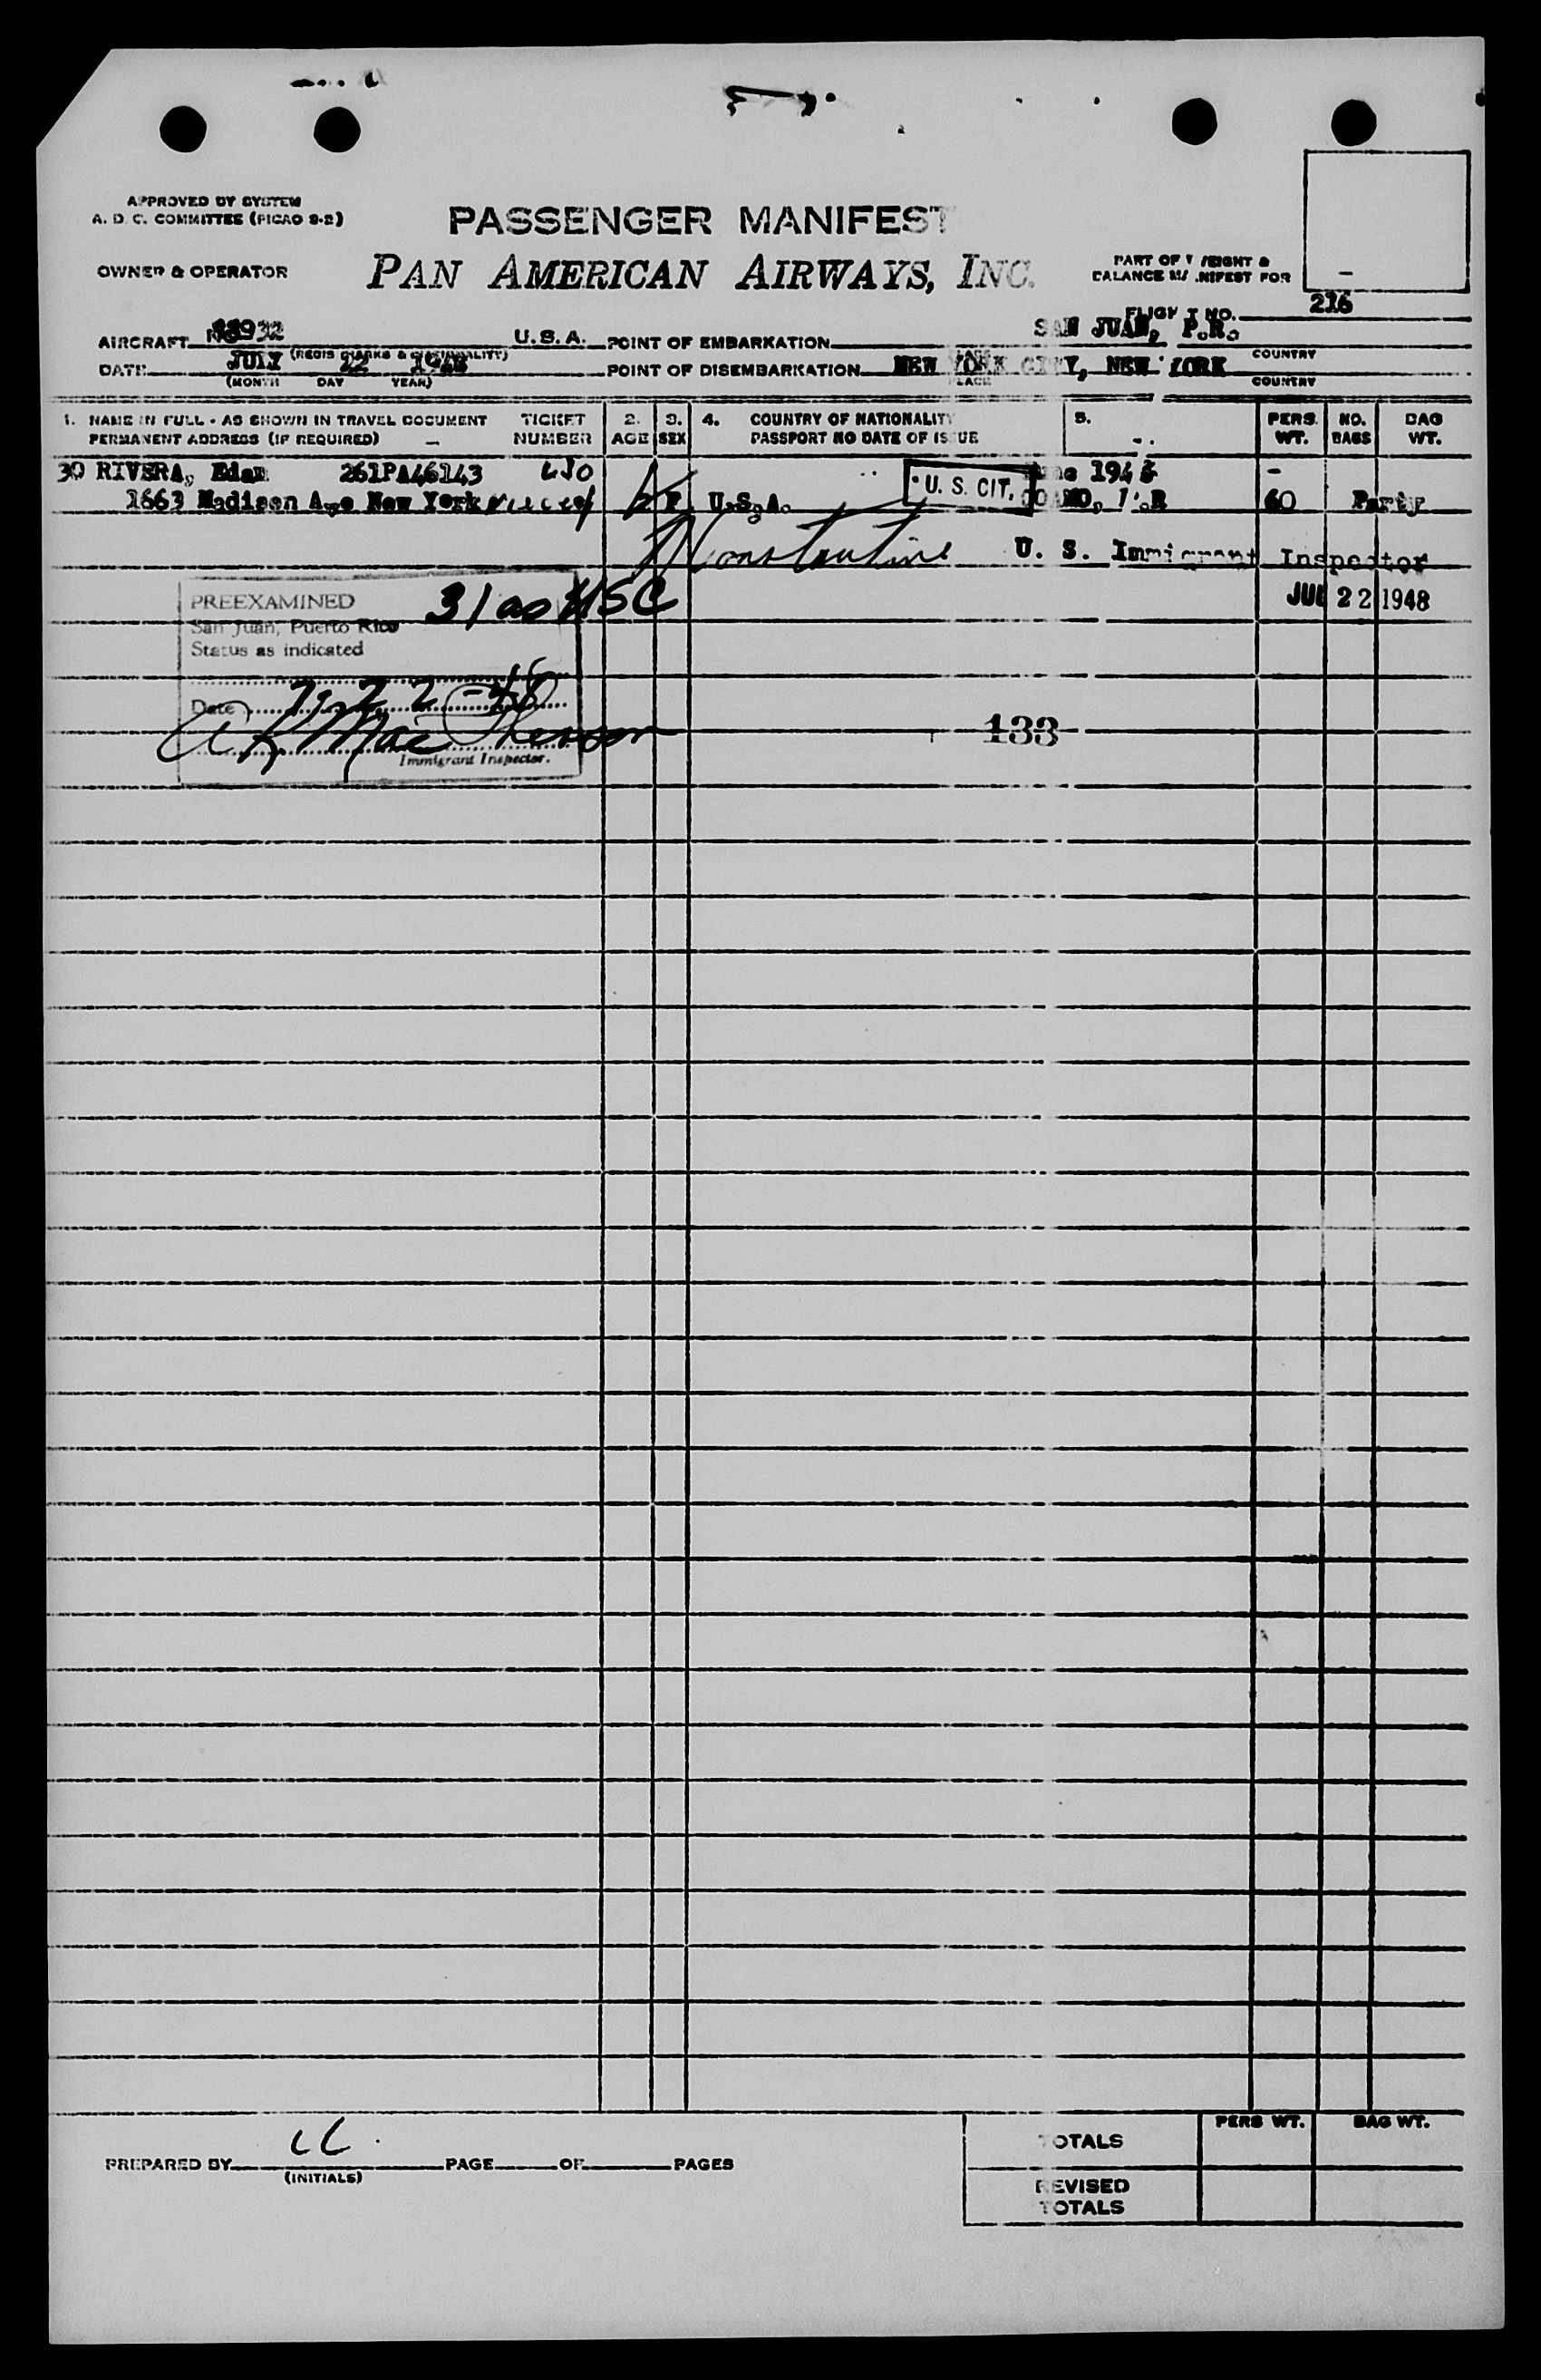 APPROVED BY SYSTEM
A. D. C. COMMITTEE (PICAO 9-2)
PASSENGER MANIFEST
OWNER & OPERATOR
PAN AMERICAN AIRWAYS, INC.
PART OF WEIGHT &
BALANCE MANIFEST FOR
FLIGHT NO. 216
AIRCRAFT U.S.A. POINT OF EMBARKATION SAN JUAN, P.R.
(REGIS MARKS & NATIONALITY) PLACE COUNTRY
DATE JULY 22 1948 POINT OF DISEMBARKATION NEW YORK CITY, NEW YORK
(MONTH DAY YEAR) PLACE COUNTRY
1. NAME IN FULL - AS SHOWN IN TRAVEL DOCUMENT TICKET 2. 3. 4. COUNTRY OF NATIONALITY 5. PERS. NO. BAG
PERMANENT ADDRESS (IF REQUIRED) NUMBER AGE SEX PASSPORT NO DATE OF ISSUE WT. BAGS WT.
30 RIVERA, 261PA46143 194
1663 Madison Ave New York F U.S.A. U. S. CIT. COAMO, P.R 60 Party
U. S. Immigrant Inspector
JUL 22 1948
PREEXAMINED
San Juan, Puerto Rico
Status as indicated
31 as USC
Date 7-22-48
A K MacPherson
Immigrant Inspector.
133
PREPARED BY PAGE OF PAGES
(INITIALS)
PERS WT. BAG WT.
TOTALS
REVISED
TOTALS